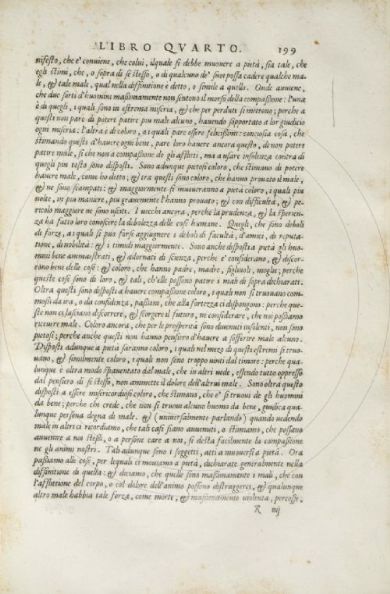 LIBRO QVARTO. 199
nifesto, che e' conuiene, che colui, ilquale si debbe muouere a pietà, sia tale, che
egli stimi, che, o sopra di se stesso, o di qualcuno de' suoi possa cadere qualche ma-
le, & tale male, qual nella diffinitione è detto, o simile a quello. Onde auuiene,
che due sorti d'huomini massimamente non sentono il morso della compassione: l'una
è di quegli, i quali sono in estrema miseria, & che per perduti si tengono; perche a
questi non pare di potere patire piu male alcuno, hauendo sopportato a lor giudicio
ogni miseria: l'altra è di coloro, a i quali pare essere felicissimi: conciosia cosa, che
stimando questi d'hauere ogni bene, pare loro hauere ancora questo, di non potere
patire male, si che non a compassione de gli afflitti, ma a usare insolenza contra di
quegli piu tosto sono disposti. Sono adunque pietosi coloro, che stimano di potere
hauere male, come ho detto, & tra questi sono coloro, che hanno prouato il male,
& ne sono scampati: & maggiormente si muoueranno a pietà coloro, i quali piu
uolte, in piu maniere, piu grauemente l'hanno prouato; & con difficultà, & pe-
ricolo maggiore ne sono usciti. I uecchi ancora, perche la prudenza, & la sperien-
za ha fatto loro conoscere la debolezza delle cose humane. Quegli, che sono deboli
di forza, a i quali si puo forse aggiugnere i deboli di facultà, d'amici, di reputa-
tione, di nobiltà: & i timidi maggiormente. Sono anche disposti a pietà gli huo-
mini bene ammaestrati, & adornati di scienza, perche e' considerano, & discor-
rono bene delle cose: & coloro, che hanno padre, madre, figliuoli, moglie; perche
queste cose sono di loro, & tali, ch'elle possono patire i mali di sopra dichiarati.
Oltra questi sono disposti a hauere compassione coloro, i quali non si truouano com-
mossi da ira, o da confidenza, passioni, che alla fortezza ci dispongono: perche que-
ste non ci lasciano discorrere, & scorgere il futuro, ne considerare, che noi possiamo
riceuere male. Coloro ancora, che per le prosperità sono diuenuti insolenti, non sono
pietosi; perche anche questi non hanno pensiero d'hauere a sofferire male alcuno.
Disposti adunque a pietà saranno coloro, i quali nel mezo di questi estremi si truo-
uano, & similmente coloro, i quali non sono troppo uinti dal timore: perche qua-
lunque è oltra modo spauentato dal male, che in altri uede, essendo tutto oppresso
dal pensiero di se stesso, non ammette il dolore dell'altrui male. Sono oltra questo
disposti a essere misericordiosi coloro, che stimano, che e' si truoui de gli huomini
da bene; perche chi crede, che non si truoui alcuno huomo da bene, giudica qua-
lunque persona degna di male. & (uniuersalmente parlando) quando uedendo
male in altri ci ricordiamo, che tali casi siano auuenuti, o stimiamo, che possano
auuenire a noi stessi, o a persona cara a noi, si desta facilmente la compassione
ne gli animi nostri. Tali adunque sono i soggetti, atti a muouersi a pietà. Ora
passiamo alle cose, per lequali ci mouiamo a pietà, dichiarate generalmente nella
diffinitione di questa: & diciamo, che quelle sono massimamente i mali, che con
l'afflitione del corpo, o col dolore dell'animo possono distruggerci, & qualunque
altro male habbia tale forza, come morte, & massimamente uiolenta, percosse,
R iiij